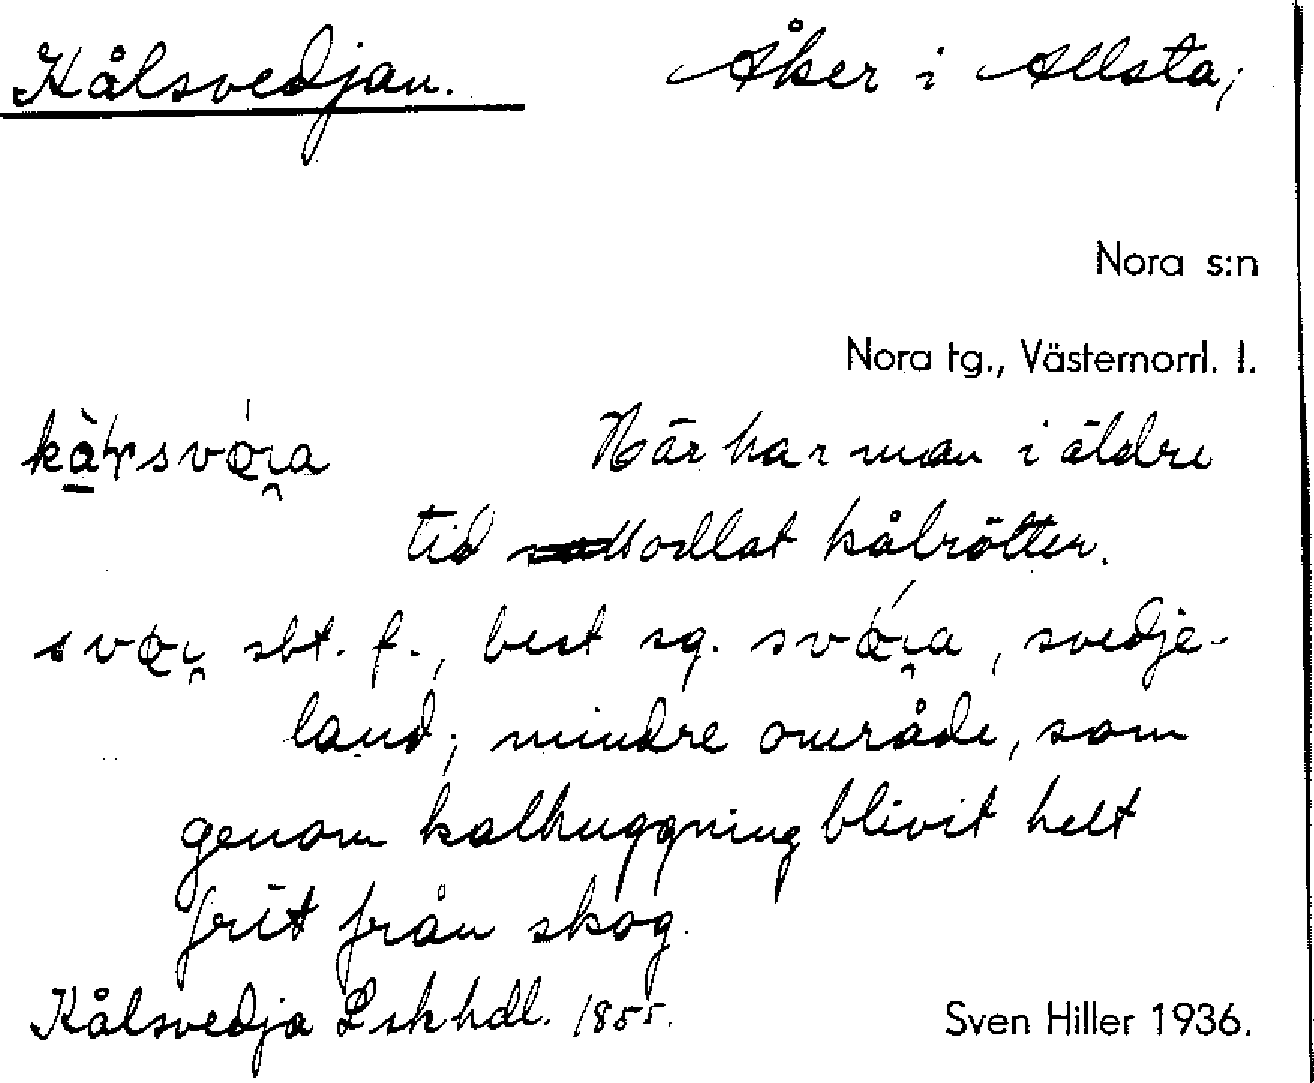 Kålsvedjan. Åker i Allsta,
Nora s:n
Nora tg., Västernorrl. l.
Här har man i äldre
tid odlat kålrötter.
sbt. f., best sg. , svedje-
land; mindre område, som
genom kalhuggning blivit helt
frit från skog.
Kålsvedja Lskhdl. 1855.
Sven Hiller 1936.